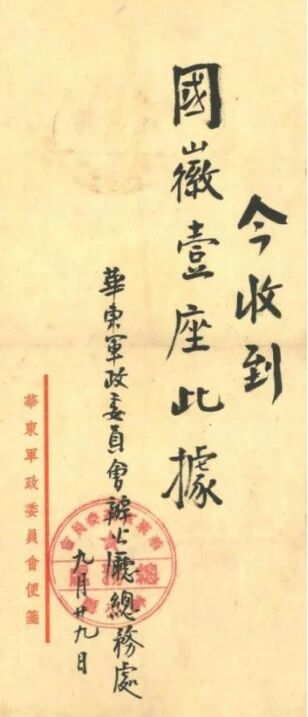 今收到
國徽壹座此據
華東軍政委員會辦公廳總務處
九月廿九日
華東軍政委員會便箋